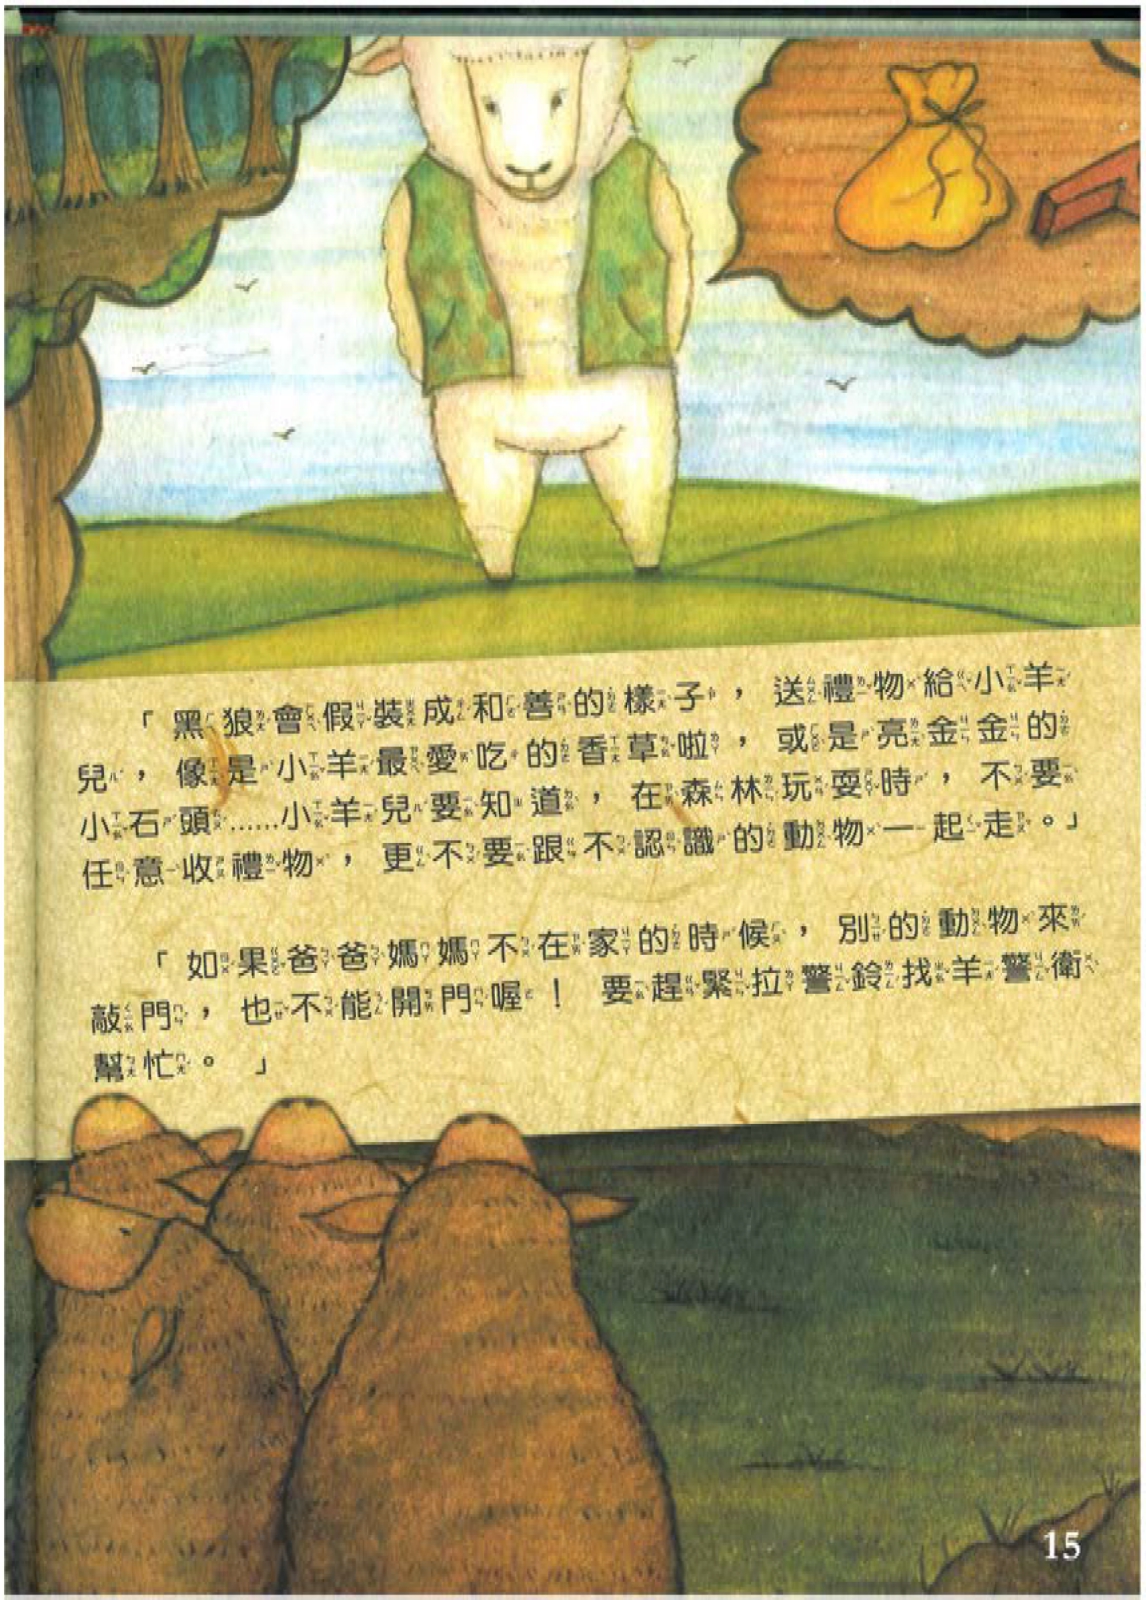 「黑狼會假裝成和善的樣子，送禮物給小羊
兒，像是小羊最愛吃的香草啦，或是亮金金的
小石頭……小羊兒要知道，在森林玩耍時，不要
任意收禮物，更不要跟不認識的動物一起走。」
「如果爸爸媽媽不在家的時候，別的動物來
敲門，也不能開門喔！要趕緊拉警鈴找羊警衛
幫忙。」
15